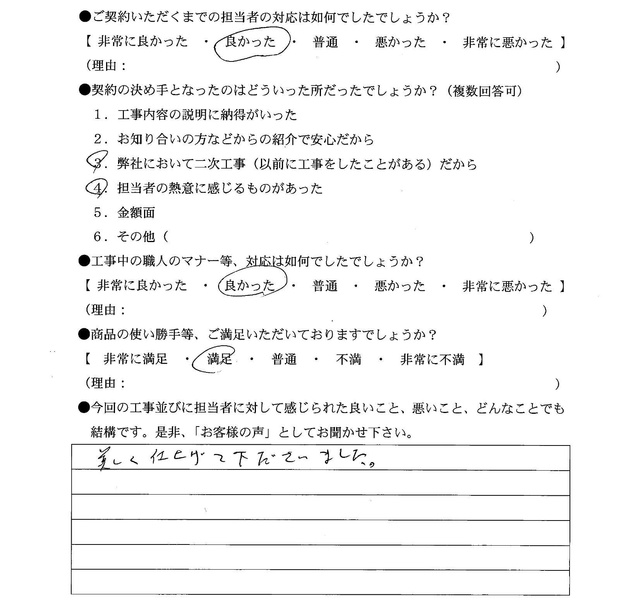 ●ご契約いただくまでの担当者の対応は如何でしたでしょうか？
【 非常に良かった ・ 良かった ・ 普通 ・ 悪かった ・ 非常に悪かった 】
（理由： ）
●契約の決め手となったのはどういった所だったでしょうか？（複数回答可）
１．工事内容の説明に納得がいった
２．お知り合いの方などからの紹介で安心だから
３．弊社において二次工事（以前に工事をしたことがある）だから
４．担当者の熱意に感じるものがあった
５．金額面
６．その他（ ）
●工事中の職人のマナー等、対応は如何でしたでしょうか？
【 非常に良かった ・ 良かった ・ 普通 ・ 悪かった ・ 非常に悪かった 】
（理由： ）
●商品の使い勝手等、ご満足いただいておりますでしょうか？
【 非常に満足 ・ 満足 ・ 普通 ・ 不満 ・ 非常に不満 】
（理由： ）
●今回の工事並びに担当者に対して感じられた良いこと、悪いこと、どんなことでも
結構です。是非、「お客様の声」としてお聞かせ下さい。
美しく仕上げて下ださいました。